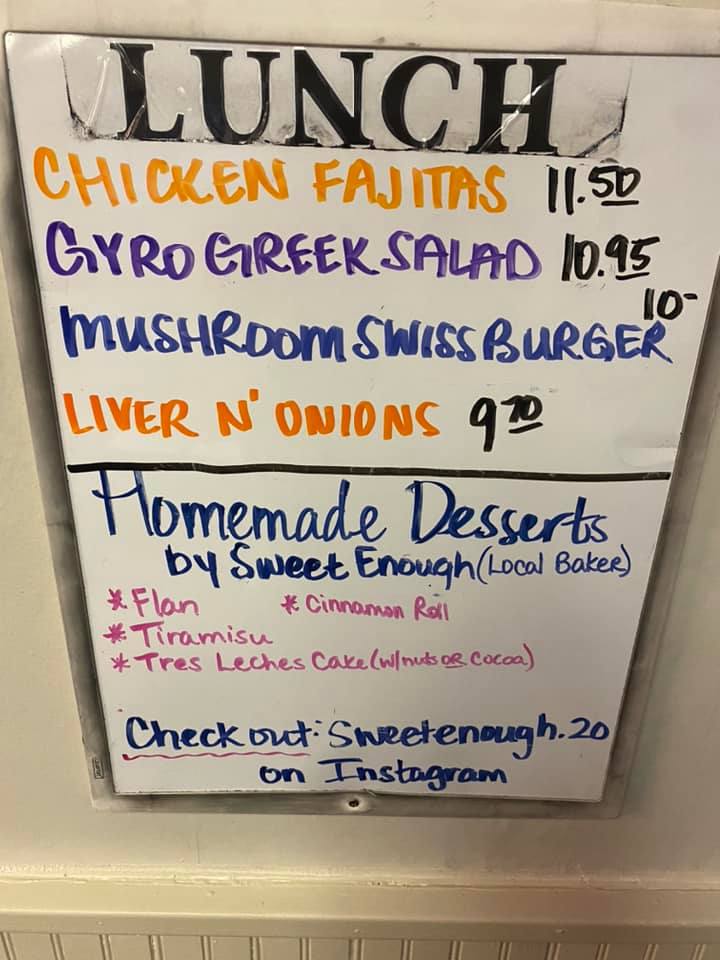 LUNCH
CHICKEN FAJITAS 11.50
GYRO GREEK SALAD 10.95
10-
MUSHROOM SWISS BURGER
LIVER N' ONIONS 9 70
Homemade Desserts
by Sweet Enough (Local Baker)
* Flan * Cinnamon Roll
* Tiramisu
* Tres Leches Cake (w/nuts OR Cocoa)
Check out: Sweetenough.20
on Instagram